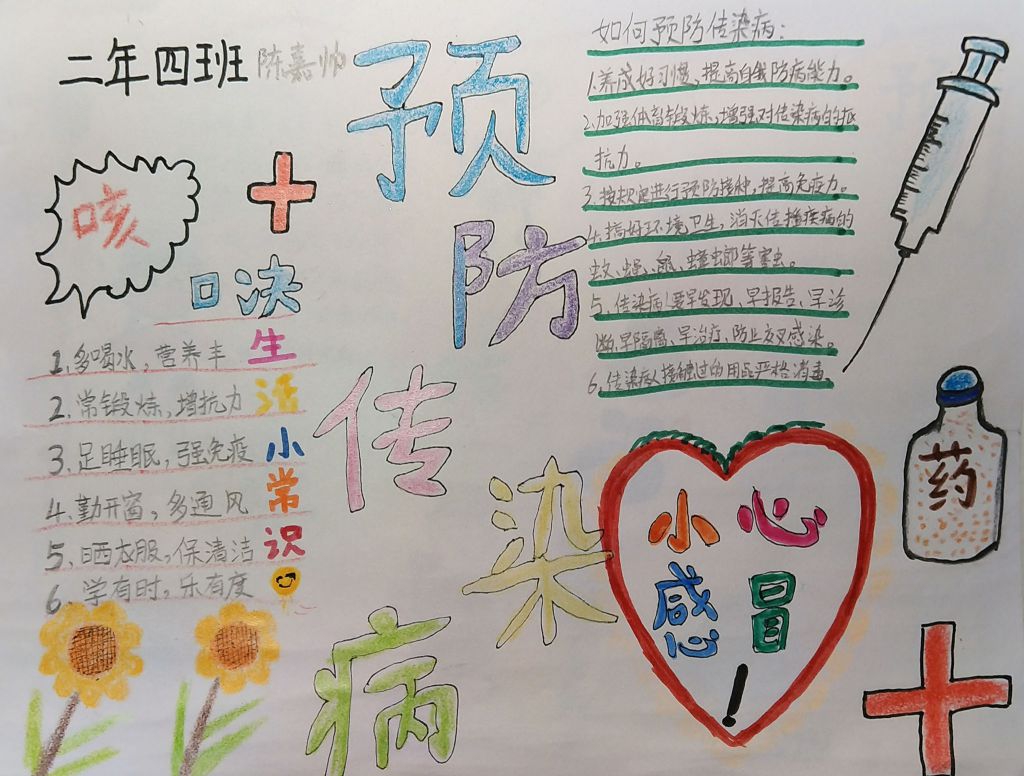 二年四班 陈嘉帅
咳
口决
1.多喝水,营养丰
2.常锻炼,增抗力
3.足睡眠,强免疫
4.勤开窗,多通风
5.晒衣服,保清洁
6.学有时,乐有度
生活小常识
预防传染病
如何预防传染病:
1.养成好习惯、提高自我防病能力。
2.加强体育锻炼,增强对传染病的抵
抗力。
3.按规定进行预防接种,提高免疫力。
4.搞好环境卫生,消灭传播疾病的
蚊、蝇、鼠、蟑螂等害虫。
5.传染病人要早发现、早报告、早诊
断,早隔离、早治疗,防止交叉感染。
6.传染病人接触过的用品严格消毒
小心
感冒
!
药